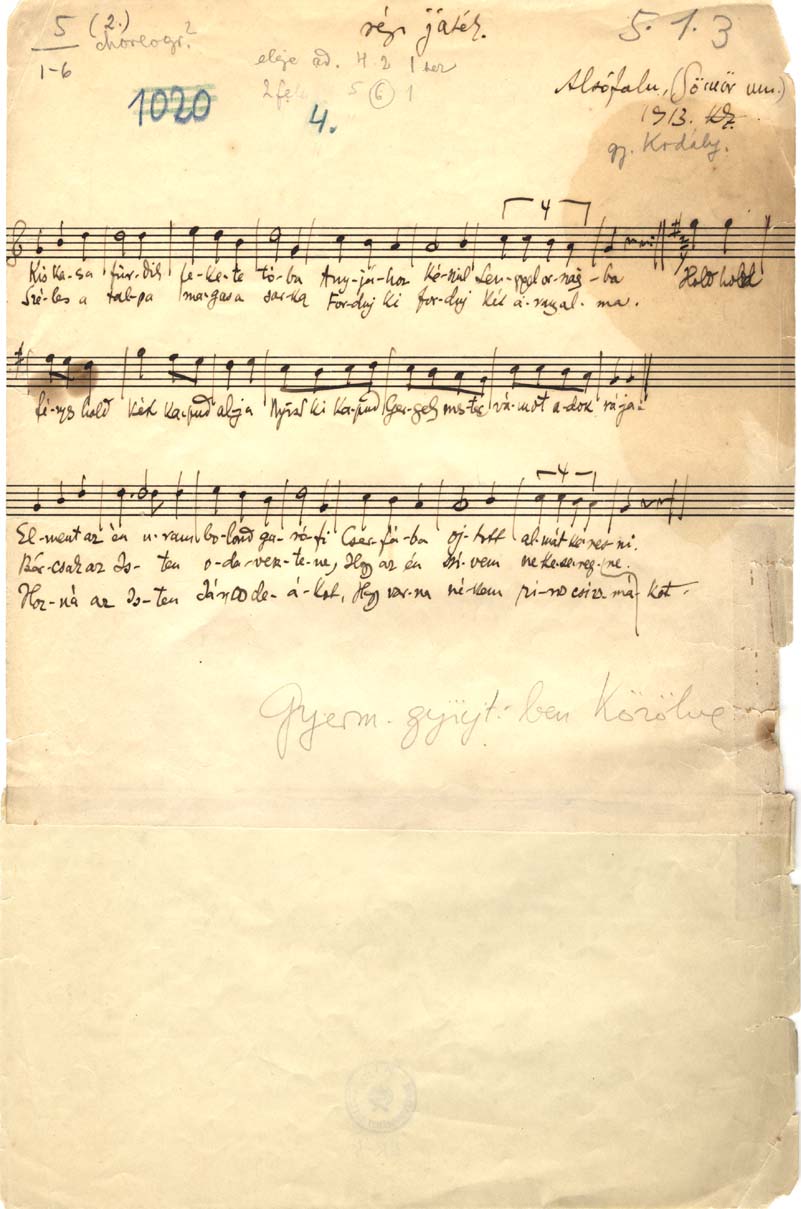 5 (2.) régi játék. 5.1.3
choreogr?
1-6
eleje ad. 4 2 1 ker
2 fele 5 6 1
1020
4.
Alsófalu, (Gömör vm.)
1913. Kz.
gy. Kodály.
4
Kis ka-sa für-dik fe-ke-te tó-ba Any-já-hoz ké-szül Len-gyel or-szág-ba Hold hold
Szé-les a tal-pa ma-gas a sar-ka For-dulj ki for-dulj két a-rany al-ma.
fé-nyes hold kék ka-pud alja Nyisd ki ka-pud Ger-gely mes-ter vá-mot a-dok rája:
4
El-ment az én u-ram bo-lond ga-rá-fi Cser-fá-ba oj-tott al-mát ke-res-ni.
Bár-csak az Is-ten o-da-vesz-te-ne, Hogy az én szí-vem ne ke-se-reg-ne.
Hoz-ná az Is-ten de-á-kot, Hogy var-na né-kem pi-ros csiz-má-kot.
Gyerm. gyüjt.-ben Közölve